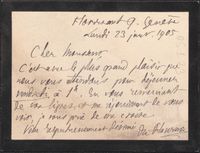 Florissant 9. Genève
Lundi 23 janv. 1905
Cher Monsieur
C'est avec le plus grand plaisir que
nous vous attendons pour déjeuner
à 1h. En vous remerciant
de vos lignes, et me réjouissant de vous
voir, je vous prie de me croire
Votre